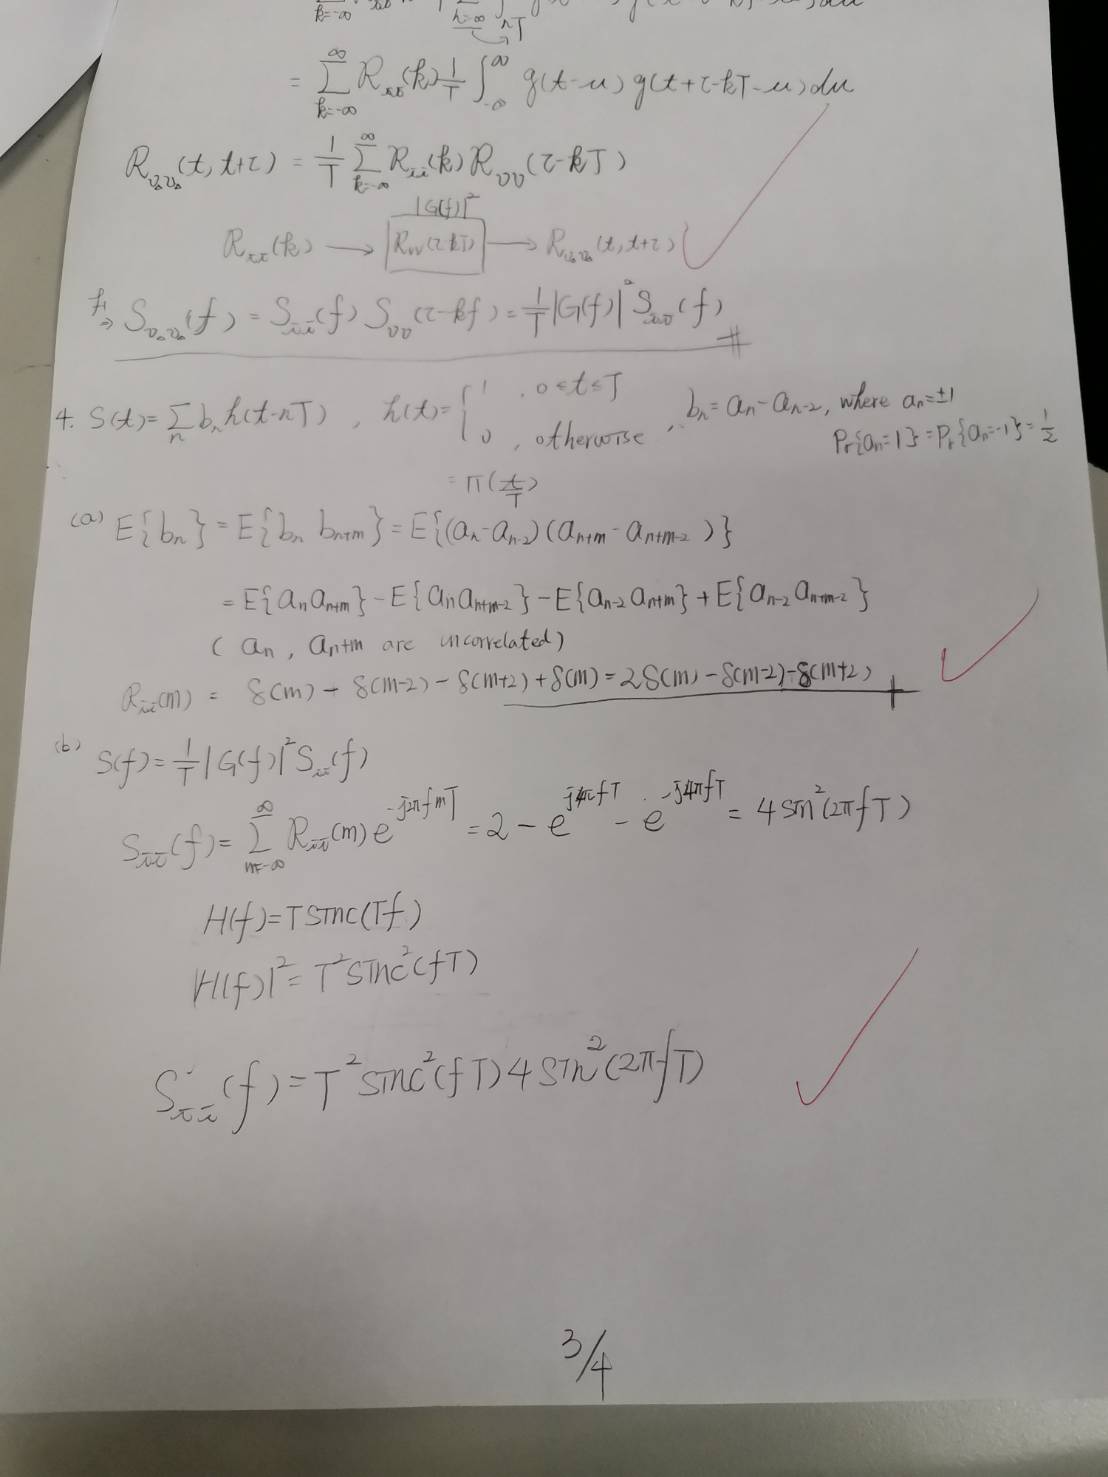 = ∑_{k=-∞}^{∞} R_{ii}(k) 1/T ∫_{-∞}^{∞} g(t-u) g(t+τ-kT-u) du
R_{v_a v_a}(t, t+τ) = 1/T ∑_{k=-∞}^{∞} R_{ii}(k) R_{vv}(τ-kT)
|G(f)|²
R_{ii}(k) → R_{vv}(τ-kT) → R_{v_a v_a}(t, t+τ)
⇒ S_{v_a v_a}(f) = S_{ii}(f) S_{vv}(τ-kf) = 1/T |G(f)|² S_{ii}(f) #
4. S(t) = ∑_n b_n h(t-nT), h(t) = { 1, 0≤t≤T ; 0, otherwise, b_n = a_n - a_{n-2}, where a_n = ±1
Pr{a_n=1} = Pr{a_n=-1} = 1/2
= π(t/T)
(a) E{b_n} = E{b_n b_{n+m}} = E{(a_n - a_{n-2})(a_{n+m} - a_{n+m-2})}
= E{a_n a_{n+m}} - E{a_n a_{n+m-2}} - E{a_{n-2} a_{n+m}} + E{a_{n-2} a_{n+m-2}}
(a_n, a_{n+m} are uncorrelated)
R_{ii}(m) = δ(m) - δ(m-2) - δ(m+2) + δ(m) = 2δ(m) - δ(m-2) - δ(m+2)
(b) S(f) = 1/T |G(f)|² S_{ii}(f)
S_{ii}(f) = ∑_{m=-∞}^{∞} R_{ii}(m) e^{-j2πfmT} = 2 - e^{j4πfT} - e^{-j4πfT} = 4 sin²(2πfT)
H(f) = T sinc(Tf)
|H(f)|² = T² sinc²(fT)
S_{ii}(f) = T² sinc²(fT) 4 sin²(2πfT)
3/4